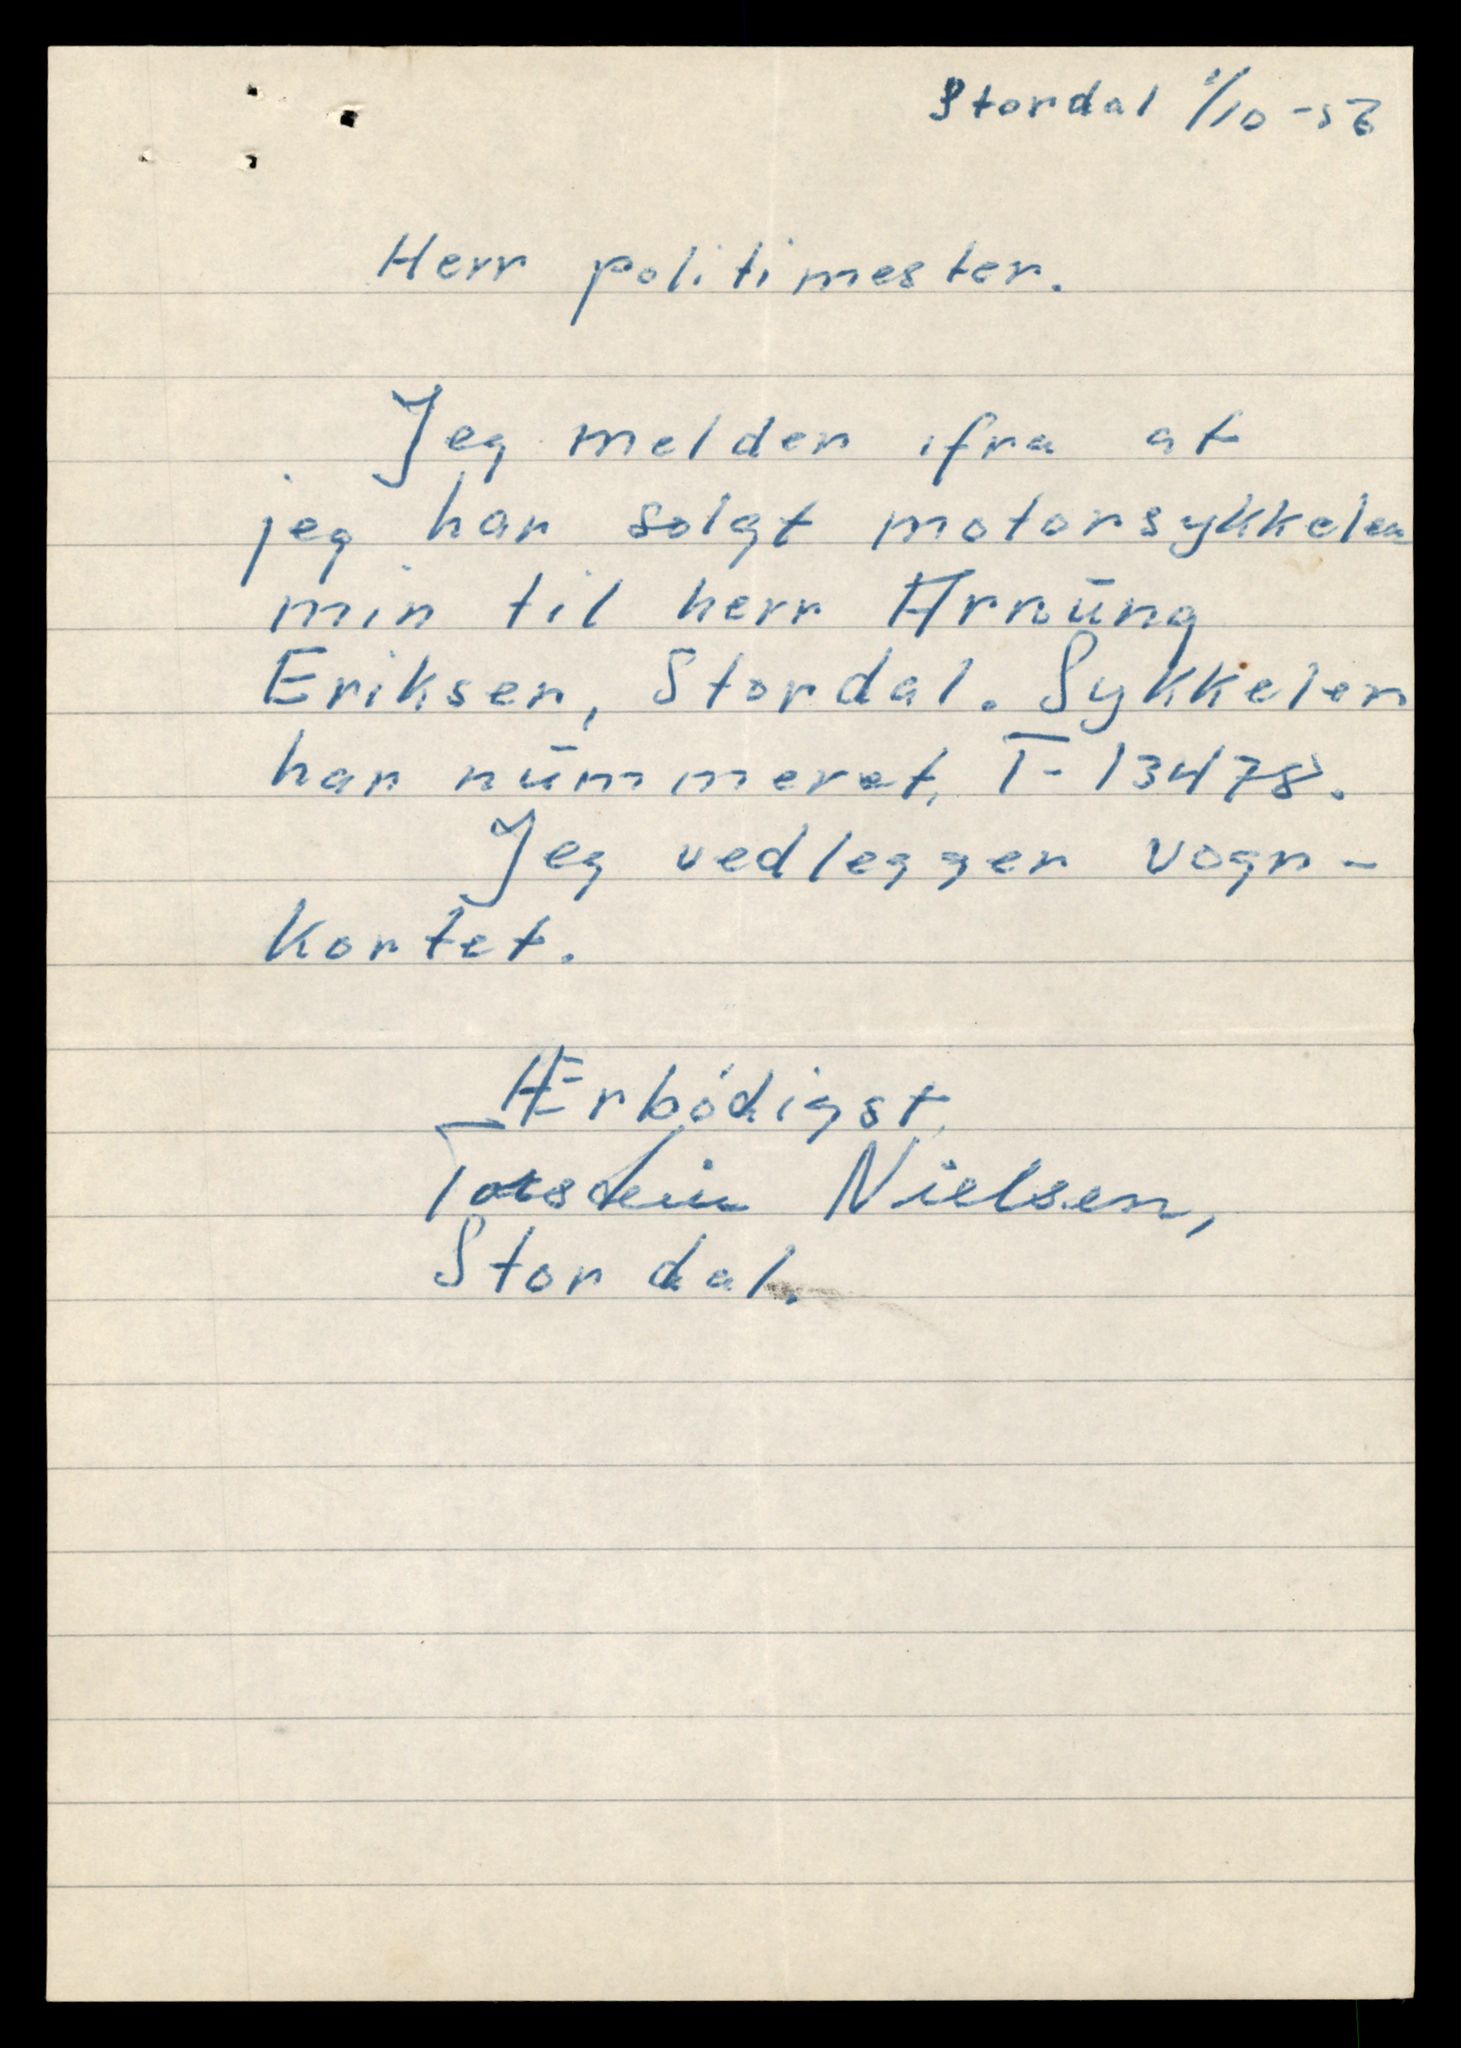 Stordal 1/10 -56
Herr politimester.
Jeg melder ifra at
jeg har solgt motorsykkelen
min til herr Arnung
Eriksen, Stordal. Sykkelen
har nummeret, T-13478.
Jeg vedlegger vogn-
kortet.
Ærbödigst,
Torstein Nielsen,
Stordal.